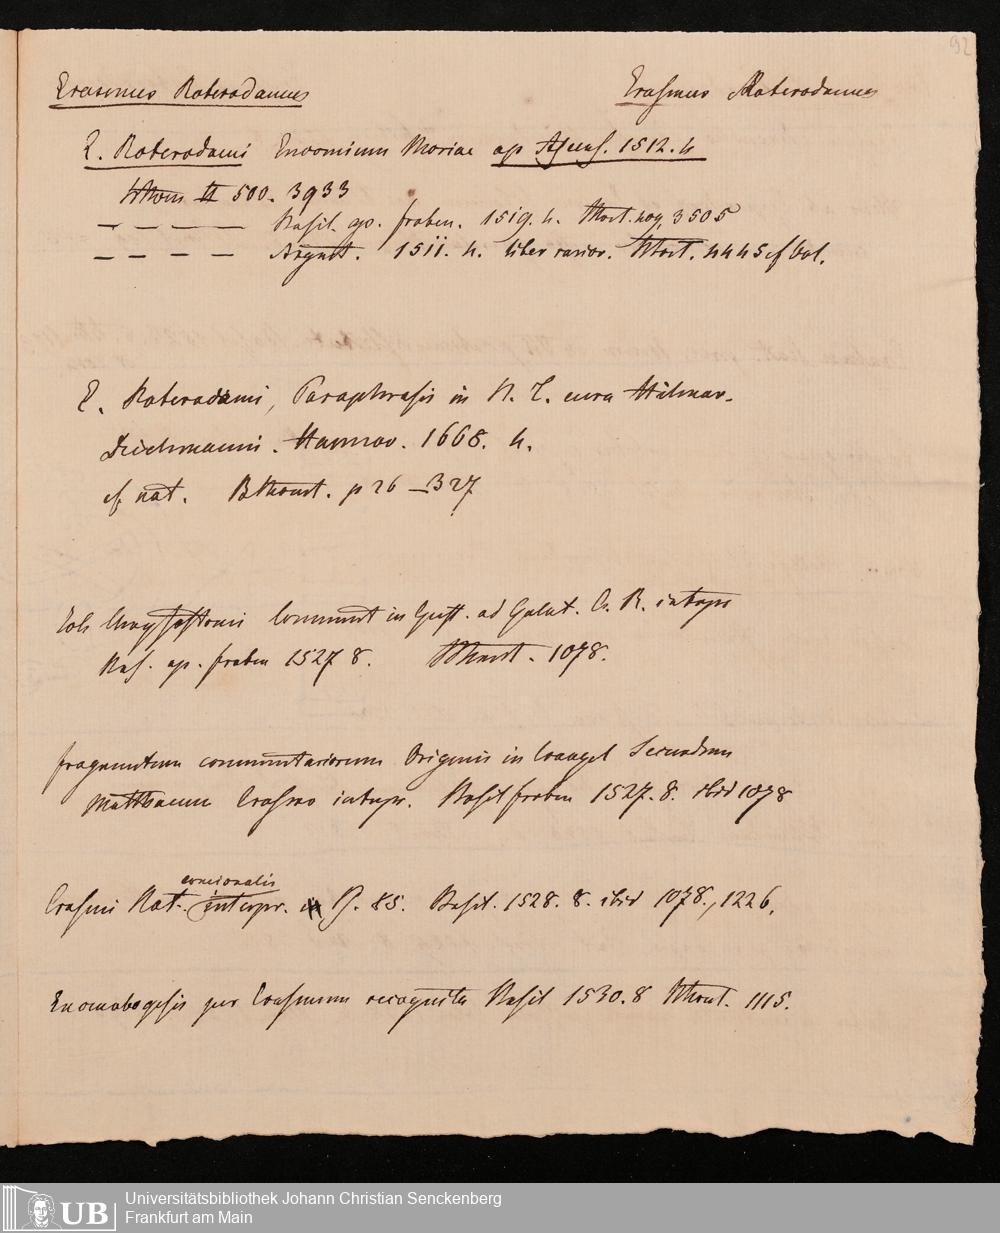 92
Erasmus Roterodamus Erasmus Roterodamus
E. Roterodami Encomium Moriae ap Ascens. 1512. 4
II 500. 3933
— — — — Basil. ap. froben. 1519. 4. 3505
— — — — Argent. 1511. 4. liber rarior. 4445 cf Vol.
E. Roterodami, Paraphrasis in N. T. cura Hilmar.
Deichmanni. Hannov. 1668. 4.
cf nat. p 26 – 327
Joh Chrysostomi Comment in Epist. ad Galat. E. R. interpr
Bas. ap. froben 1527 8. 1078.
fragmentum commentariorum Origenis in Evangel Secundum
Matthaeum Erasmo interpr. Basil froben 1527. 8. ibid 1078
concionalis
Erasmi Rot. interpr. in Ps. 85. Basil. 1528. 8. ibid 1078., 1226.
per Erasmum recognita Basil 1530. 8 1115.
UB
Universitätsbibliothek Johann Christian Senckenberg
Frankfurt am Main